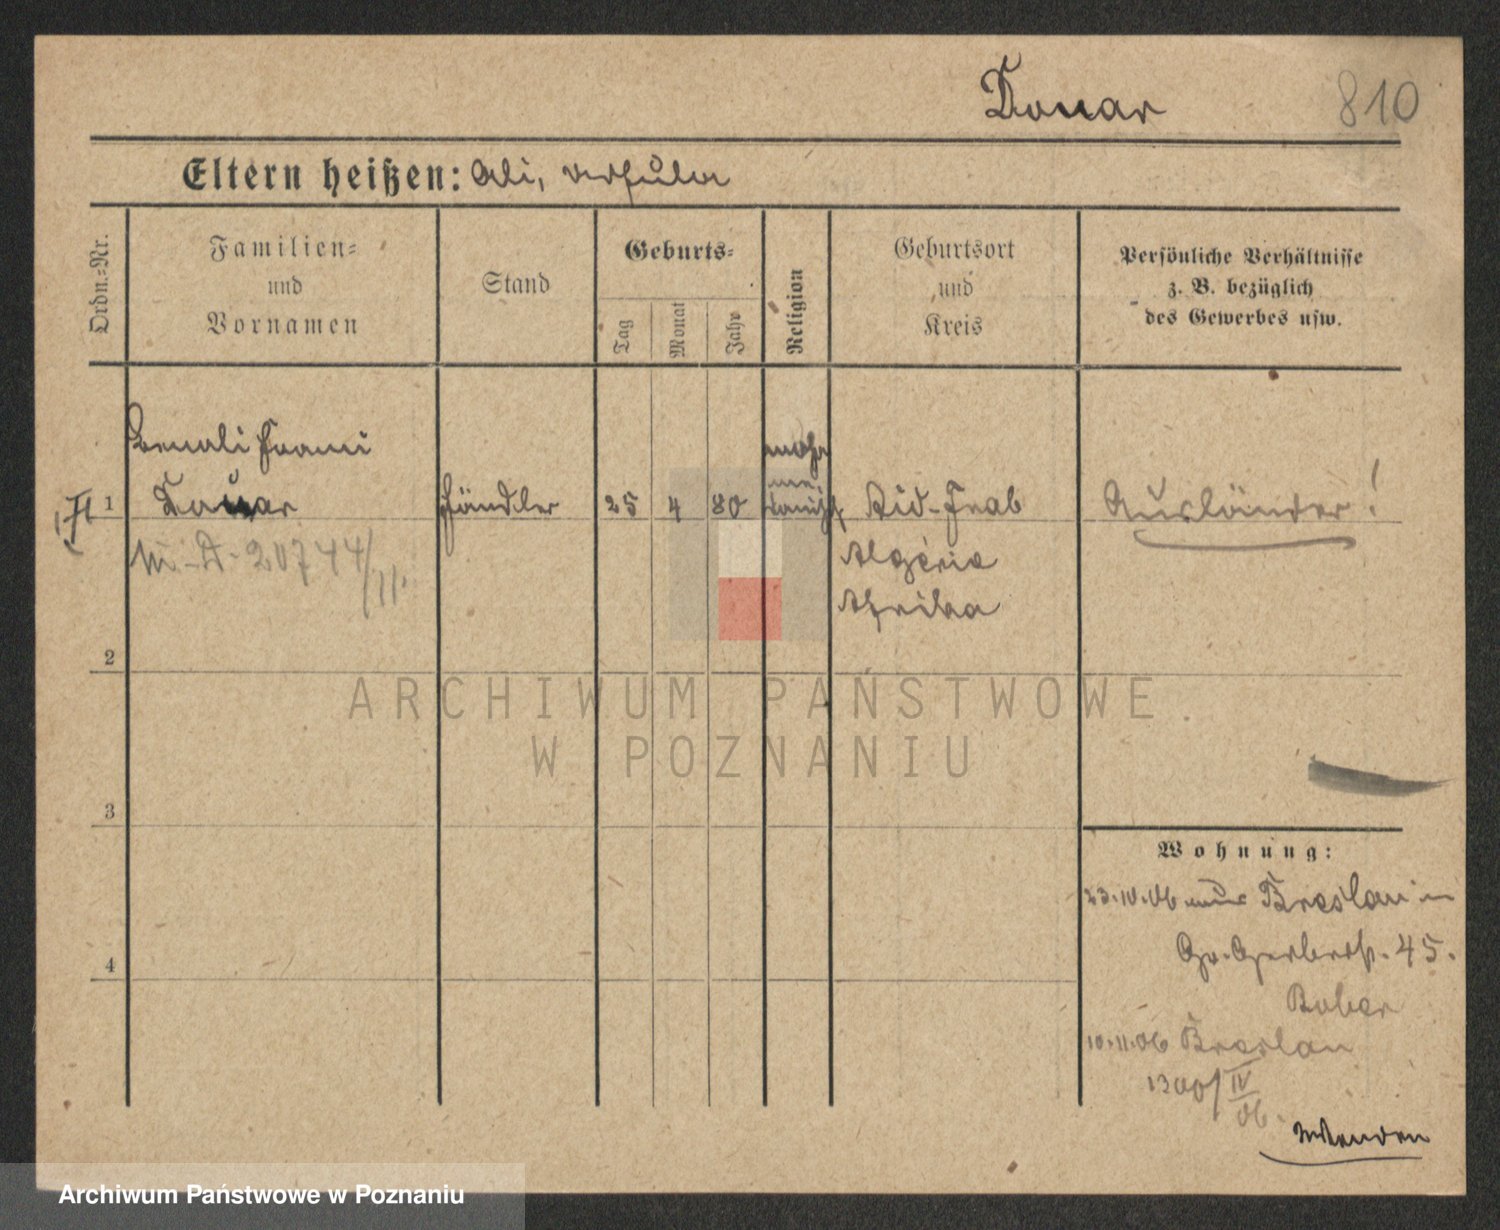 Douar
810
Eltern heißen: Ali,
Ordn.=Nr.
Familien=
und
Vornamen
Stand
Geburts=
Tag
Monat
Jahr
Religion
Geburtsort
und
Kreis
Persönliche Verhältnisse
z. B. bezüglich
des Gewerbes usw.
Benali
1 Douar Händler 25 4 80 moha
me
danisch
Algérie
Afrika
Ausländer!
M.-A. 20744/11.
2
3
4
ARCHIWUM PAŃSTWOWE
W POZNANIU
Wohnung:
23.10.06 aus Breslau in
Gr. Gerberstr. 45.
Bober
10.11.06 Breslau
1300/IV
06.
Wenden
Archiwum Państwowe w Poznaniu